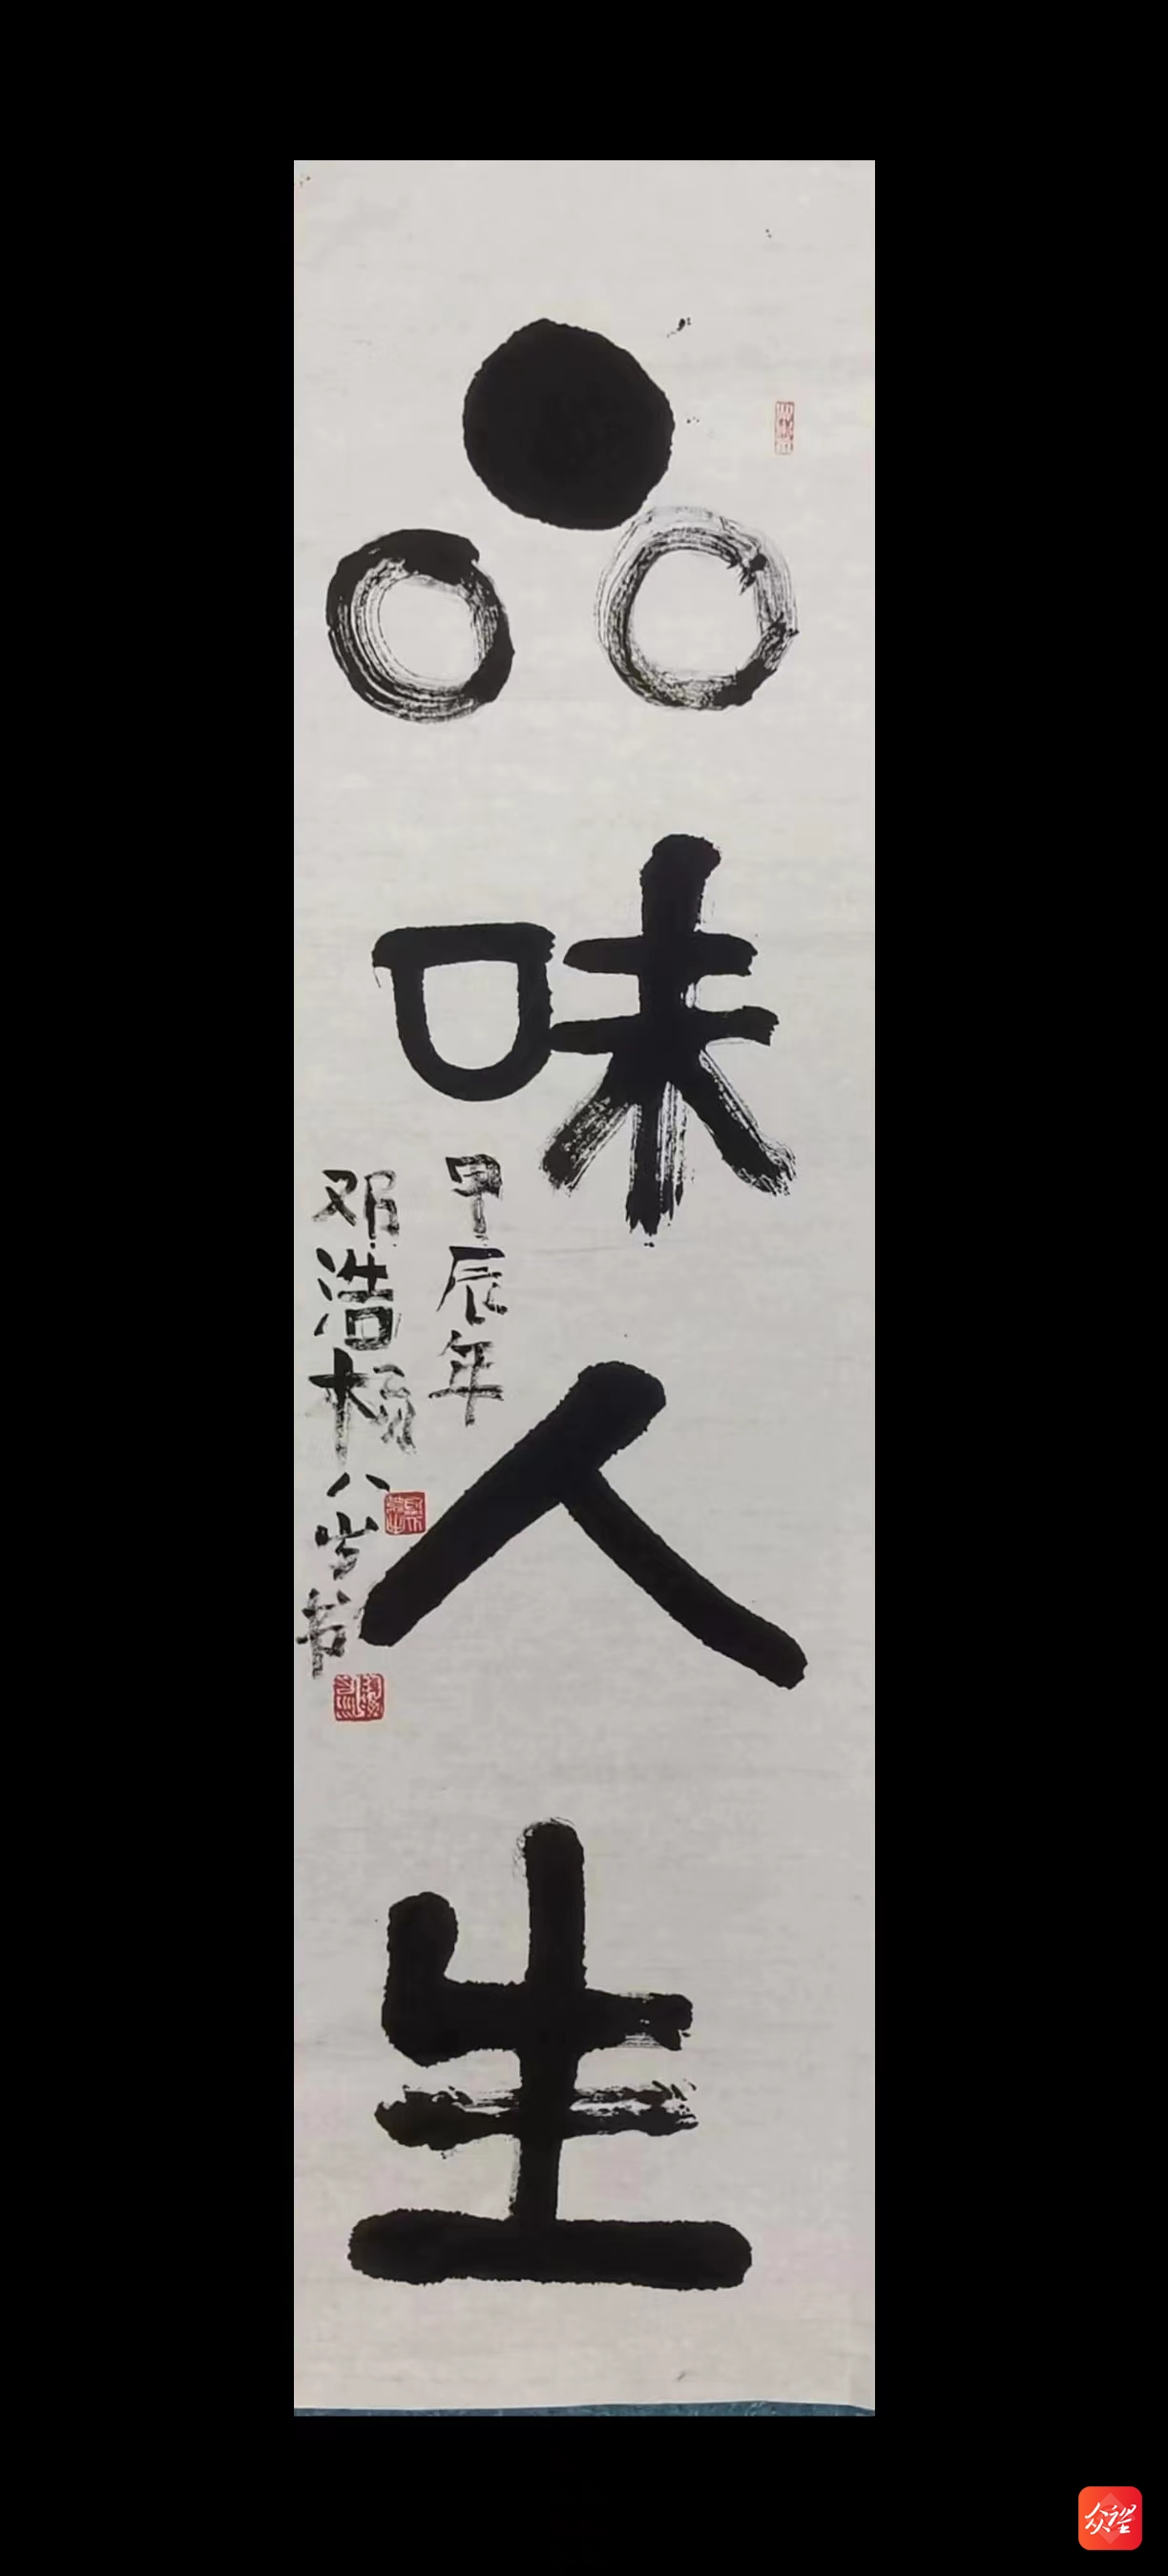 品味人生
甲辰年
邓浩桢八岁书
众望